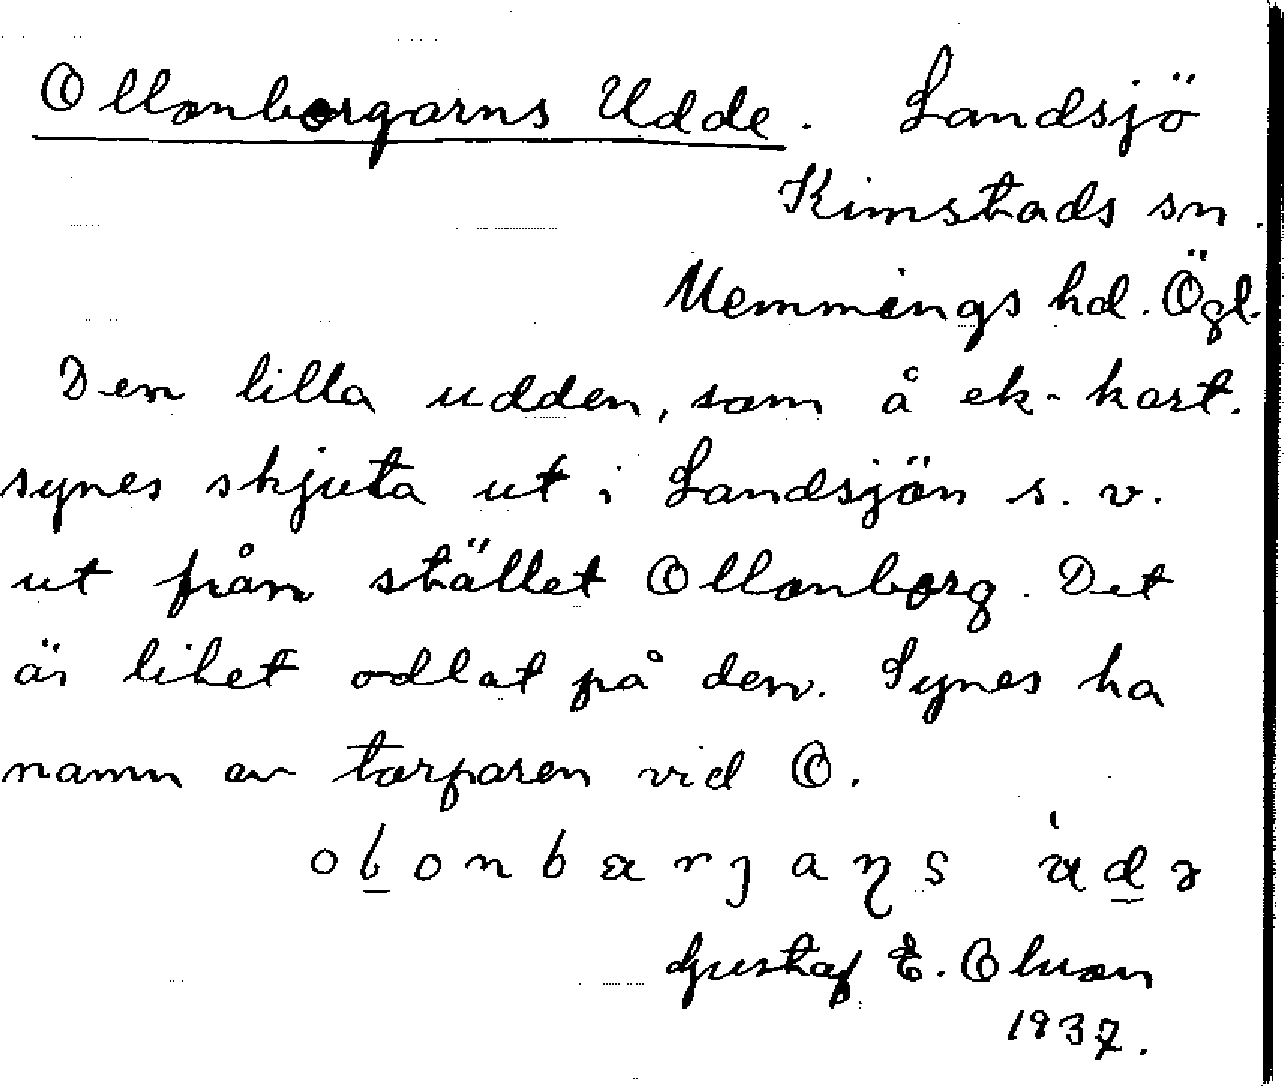 Ollonborgarns Udde. Landsjö
Kimstads sn.
Memmings hd. Ögl.
Den lilla udden, som å ek. kart.
synes skjuta ut i Landsjön s. v.
ut från stället Ollonborg. Det
är litet odlat på den. Synes ha
namn av torparen vid O.
Gustaf E. Olsson
1937.